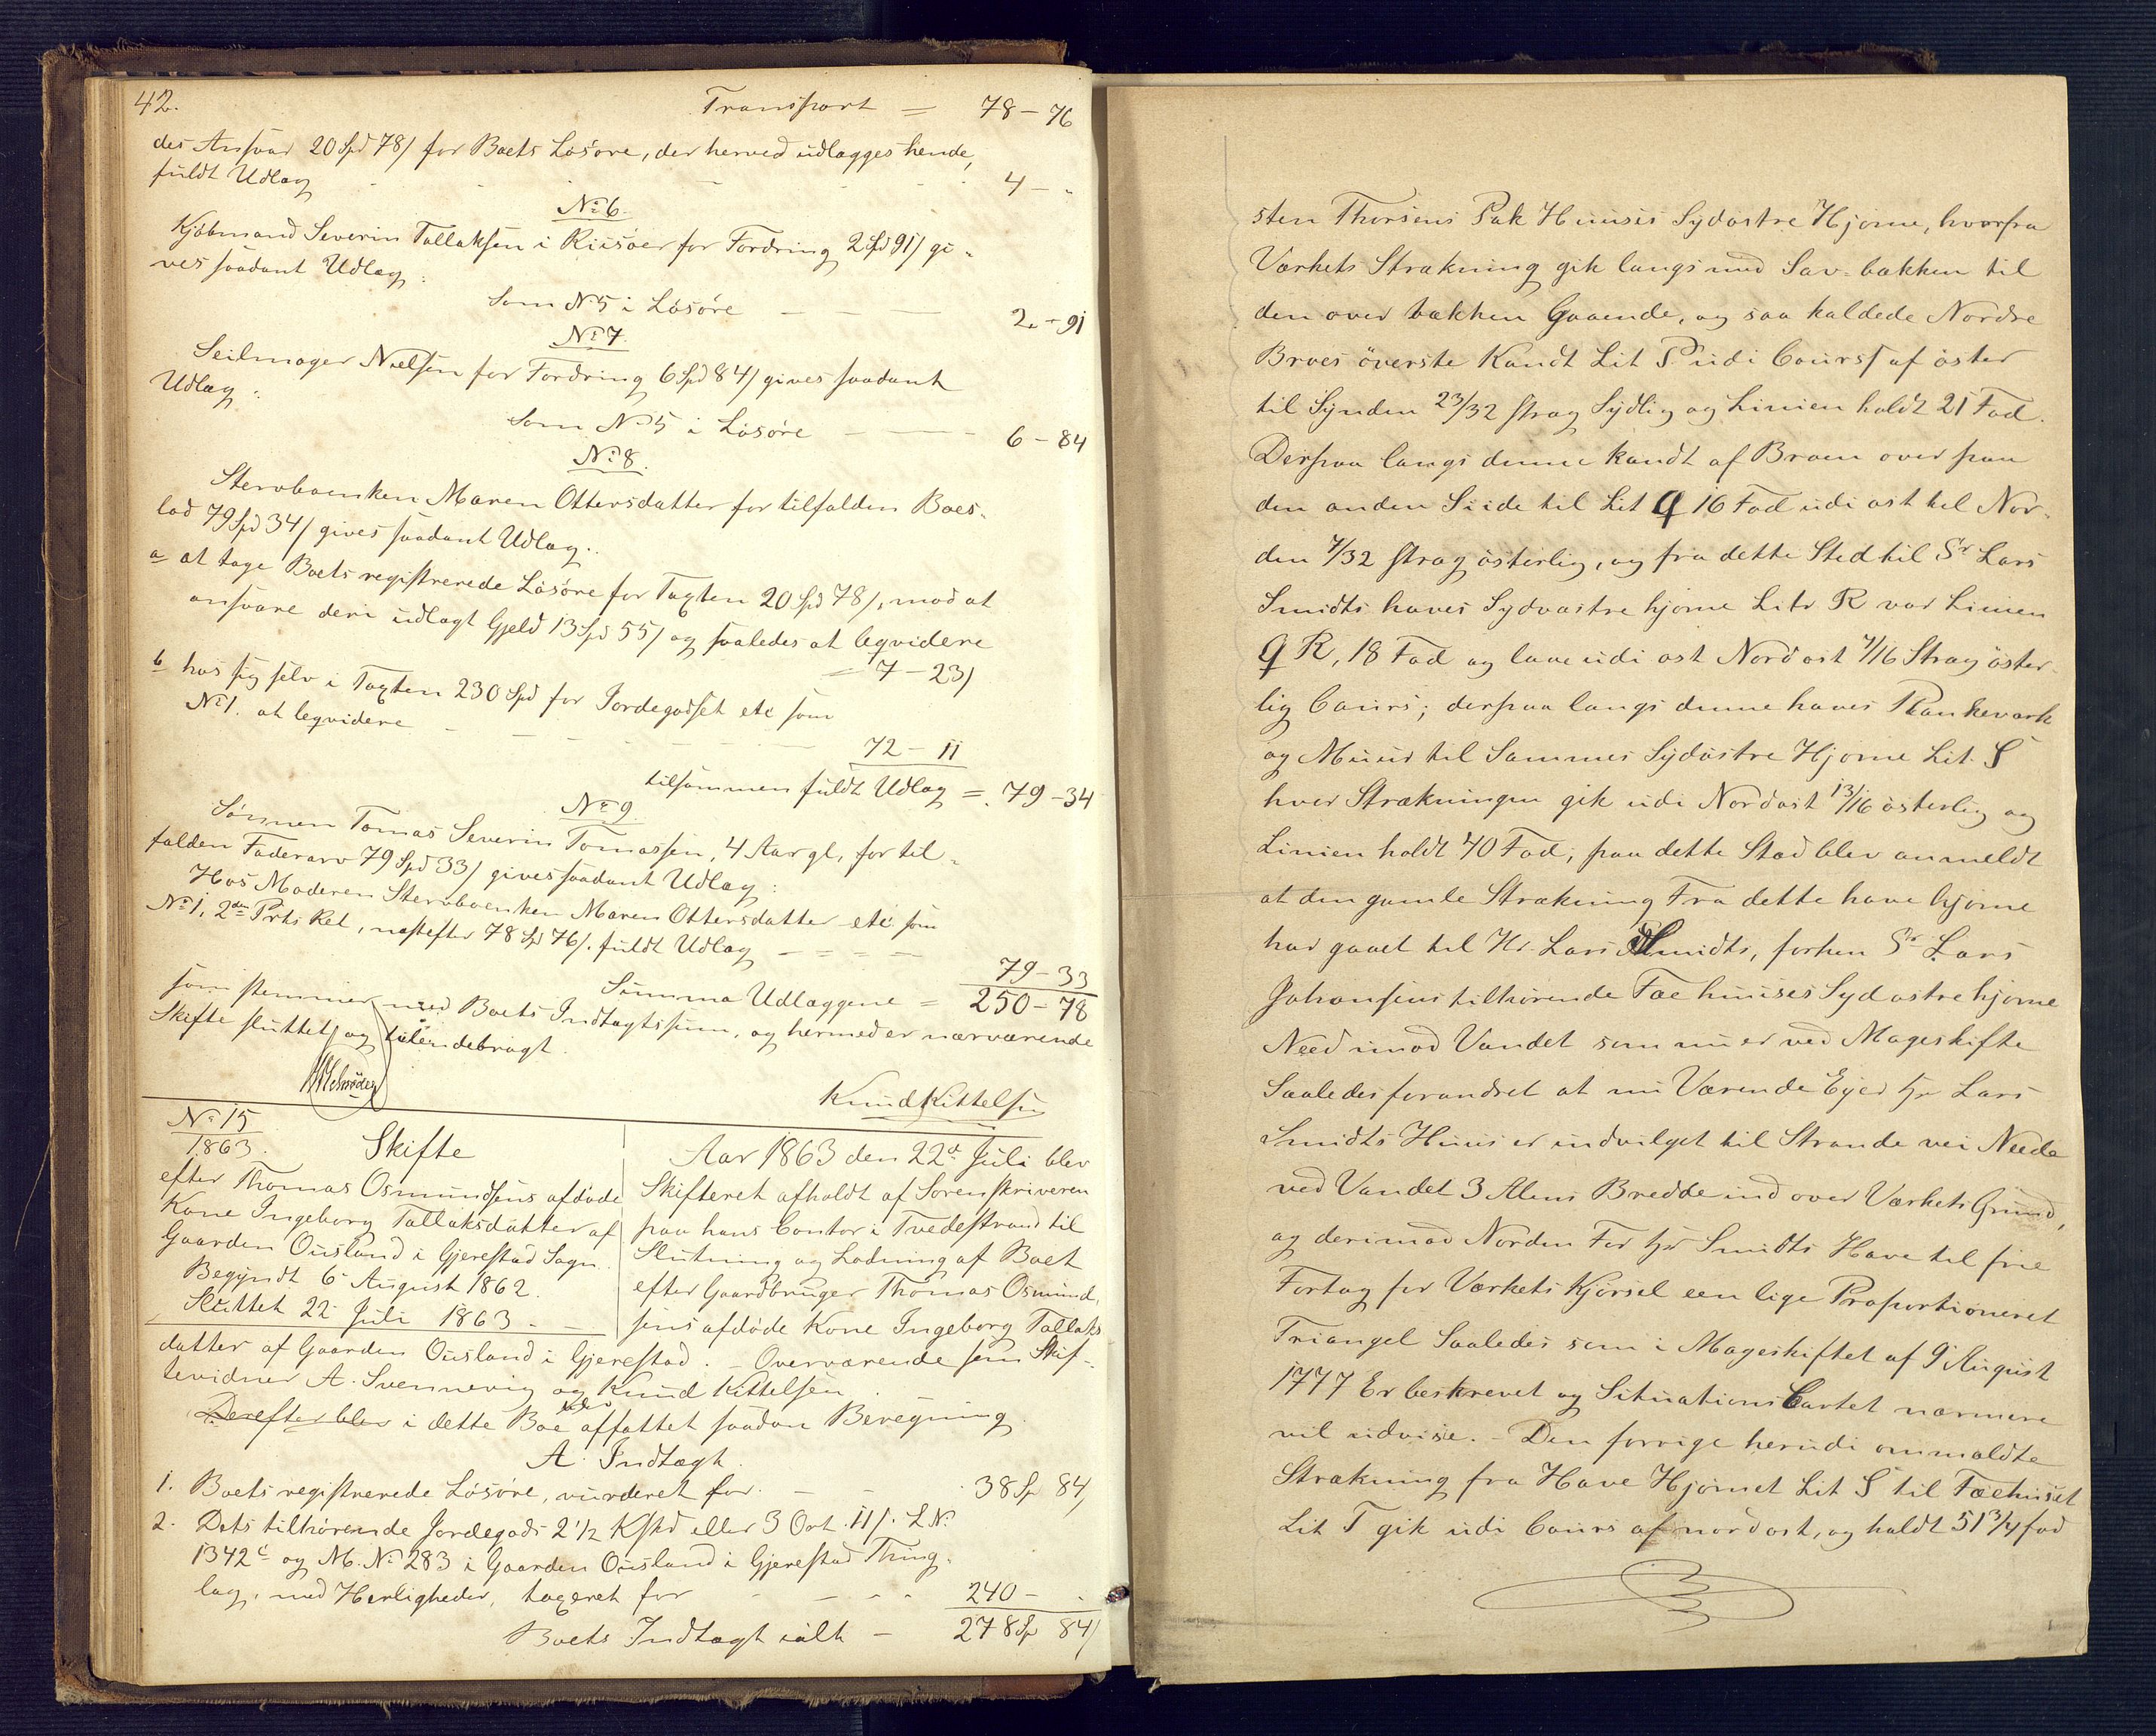 42.
Transport = 78-76
des Ansvar 20 Spd 78/ for Boets Løsøre, der herved udlægges hende,
fuldt Udlæg - - - 4 - "
No 6.
Kjøbmand Severin Tallaksen i Riisøer for Fordring 2 Spd 91/ gi-
ves saadant Udlæg:
Som No 5 i Løsøre - - - 2 - 91
No 7.
Seilmager Nielsen for Fordring 6 Spd 84/ gives saadant
Udlæg:
Som No 5 i Løsøre - - 6 - 84
No 8.
Stervboenken Maren Ottersdatter for tilfalden Boes-
lod 79 Spd 34/ gives saadant Udlæg:
a at tage Boets registrerede Løsøre for Taxten 20 Spd 78/, mod at
ansvare deri udlagt Gjeld 13 Spd 55/ og saaledes at leqvidere
= 7 - 23/
b hos sig selv i Taxten 230 Spd for Jordegodset etc som
No 1. at leqvidere - - - 72 - 11
tilsammen fuldt Udlæg = 79 - 34
No 9.
Sønnen Tomas Severin Tomassen, 4 Aar gl, for til-
falden Faderarv 79 Spd 33/ gives saadant Udlæg:
Hos Moderen Stervboenken Maren Ottersdatter etc som
No 1, 2den Prts Ret, næstefter 78 Spd 76/. fuldt Udlæg - - - 79 - 33
Summa Udlæggene = 250 - 78
som stemmer med Boets Indtægtssum, og hermed er nærværende
Skifte sluttet og tilendebragt.
Schrøder
Knud Kittelsen
No 15
1863.
Skifte
efter Thomas Osmundsens afdøde
Kone Ingeborg Tallaksdatter af
Gaarden Ousland i Gjerestad Sogn.
Begyndt 6 August 1862.
Sluttet 22 Juli 1863. -
Aar 1863 den 22de Juli blev
Skifteret afholdt af Sorenskriveren
paa hans Contor i Tvedestrand til
Slutning og Lodning af Boet
efter Gaardbruger Thomas Osmund-
sens afdøde Kone Ingeborg Tallaks
datter af Gaarden Ousland i Gjerestad. - Overværende som Skif-
tevidner A. Svennevig og Knud Kittelsen.
Derefter blev i dette Boe blev affattet saadan Beregning.
A. Indtægt.
1. Boets registrerede Løsøre, vurderet for - - 38 Sp 84/
2. Dets tilhørende Jordegods 2 1/2 Kshd eller 3 Ort 11/. L No
1342c og M. No 283 i Gaarden Ousland i Gjerestad Thing-
lag, med Herligheder, taxeret for - - - 240 - .
Boets Indtægt ialt - 278 Sp 84/
sten Thorsens Pak Huuses Sydøstre Hjørne, hvorfra
Værkets Strækning gik langs med Sav-bækken til
den over bækken Gaaende, og saa kaldede Nordre
Broes øverste Kandt Lit P udi Cours af øster
til Synden 23/32 strag Sydlig og Linien holdt 21 Fod.
Derpaa langs denne kandt af Broen over paa
den anden Siide til Lit Q 16 Fod udi ost til Nor-
den 7/32 strag østerlig, og fra dette Sted til Sr Lars
Smidts haves Sydvæstre hjørne Litr R var Linien
Q R, 18 Fod og lave udi ost Nordost 7/16 Strag øster-
lig Cours; derpaa langs denne haves Plankeværk
og Muur til Sammes Sydøstre Hjørne Lit. S
hver Strækningen gik udi Nordost 13/16 østerlig og
Linien holdt 40 Fod, paa dette Sted blev anmeldt
at den gamle Strækning Fra dette have hjørne
har gaaet til Hr. Lars Smidts, forhen Sr Lars
Johansens tilhørende Fæe huuses Sydøstre hjørne
Need imod Vandet som nu er ved Mageskifte
Saaledes forandret at nu Værende Eyer hr Lars
Smidts Huus er indvilget til Strande vei Neede
ved Vandet 3 Alens Bredde ind over Værkets Grund,
og derimod Norden For hr Smidts Have til frie
Fortog for Værkets Kjørsel een lige Proportioneret
Triangel Saaledes som i Mageskiftet af 9 August
1777 Er beskrevet og Situations Cartet nærmere
vil udvise. - Den forrige herudi ommældte
Strækning fra Have Hjørnet Lit S til Fæehuset
Lit T gik udi Cours af nordost, og holdt 51 3/4 fod